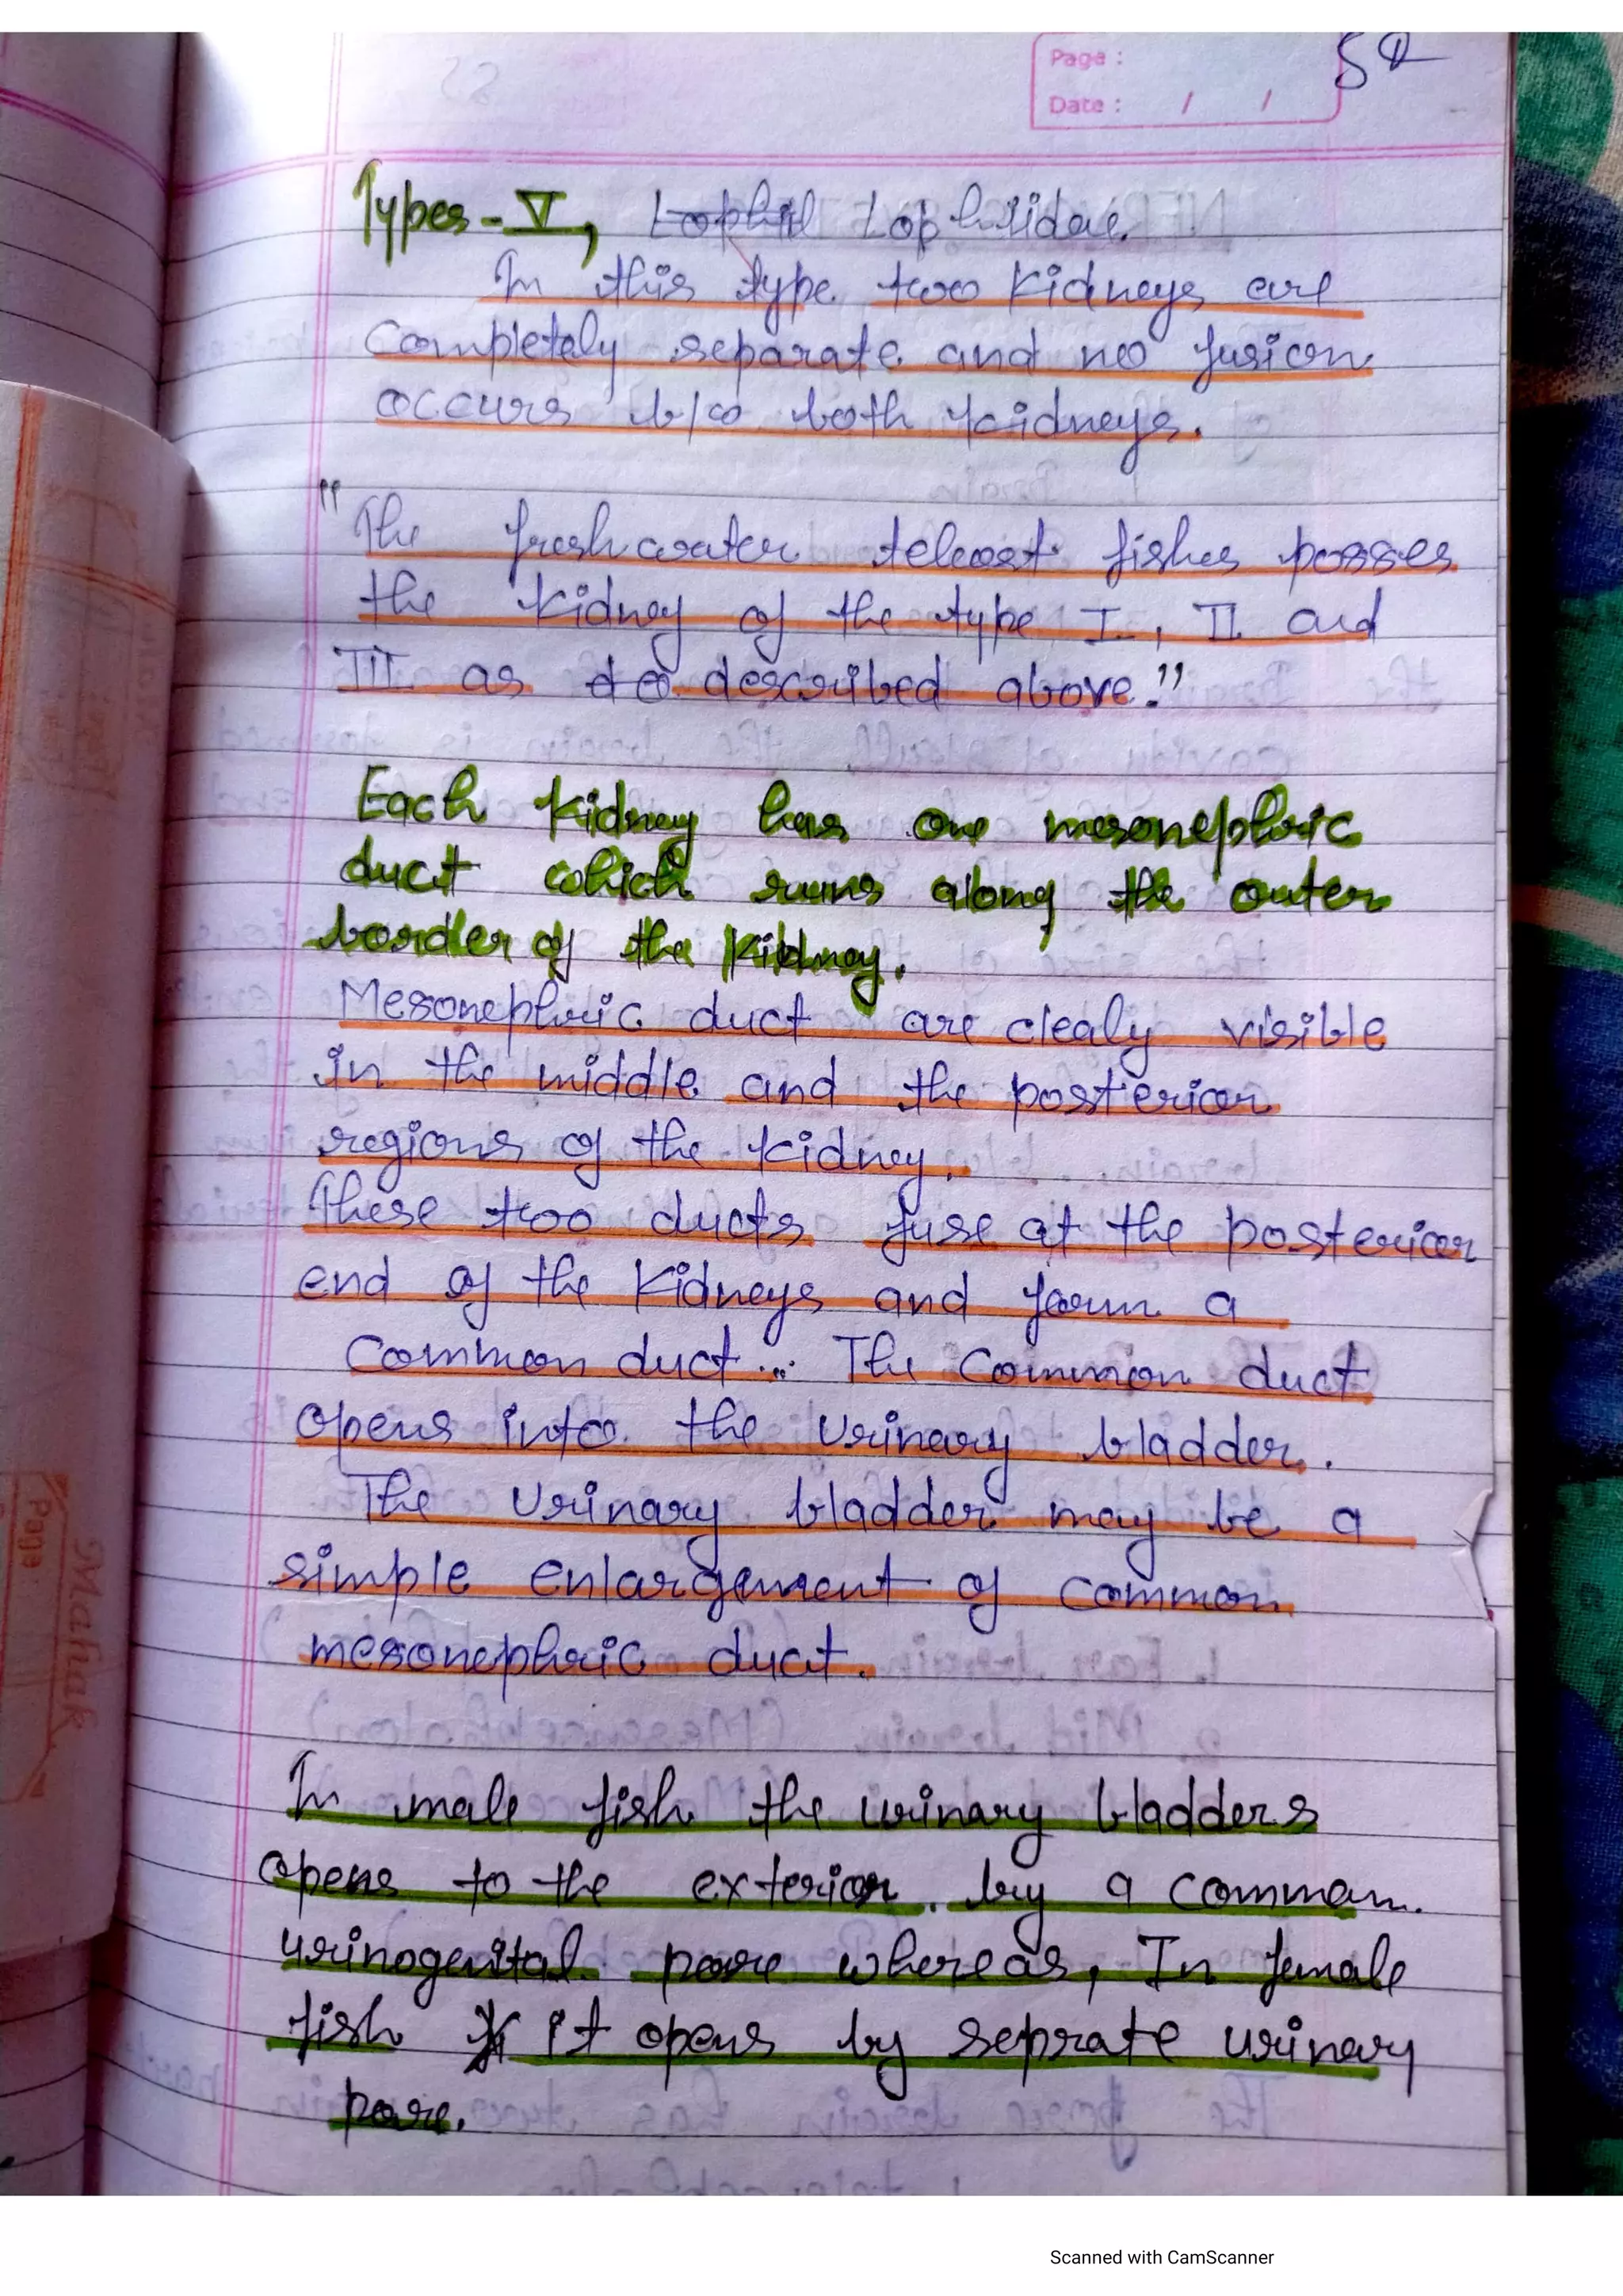 Page :
Date : / /
52
Types - V, Lophiidae.
In this type two kidneys are
completely separate and no fusion
occurs b/w both kidneys.
"The freshwater teleost fishes posses
the kidney of the type I, II and
III as described above."
Each kidney has one mesonephric
duct which runs along the outer
border of the kidney.
Mesonephric duct are clealy visible
in the middle and the posterior
regions of the kidney.
These two ducts fuse at the posterior
end of the kidneys and form a
common duct... The common duct
opens into the urinary bladder.
The urinary bladder may be a
simple enlargement of common
mesonephric duct.
In male fish the urinary bladders
opens to the exterior by a common
urinogenital pore whereas, In female
fish it opens by seprate urinary
pore.
Mahak
Page
Scanned with CamScanner